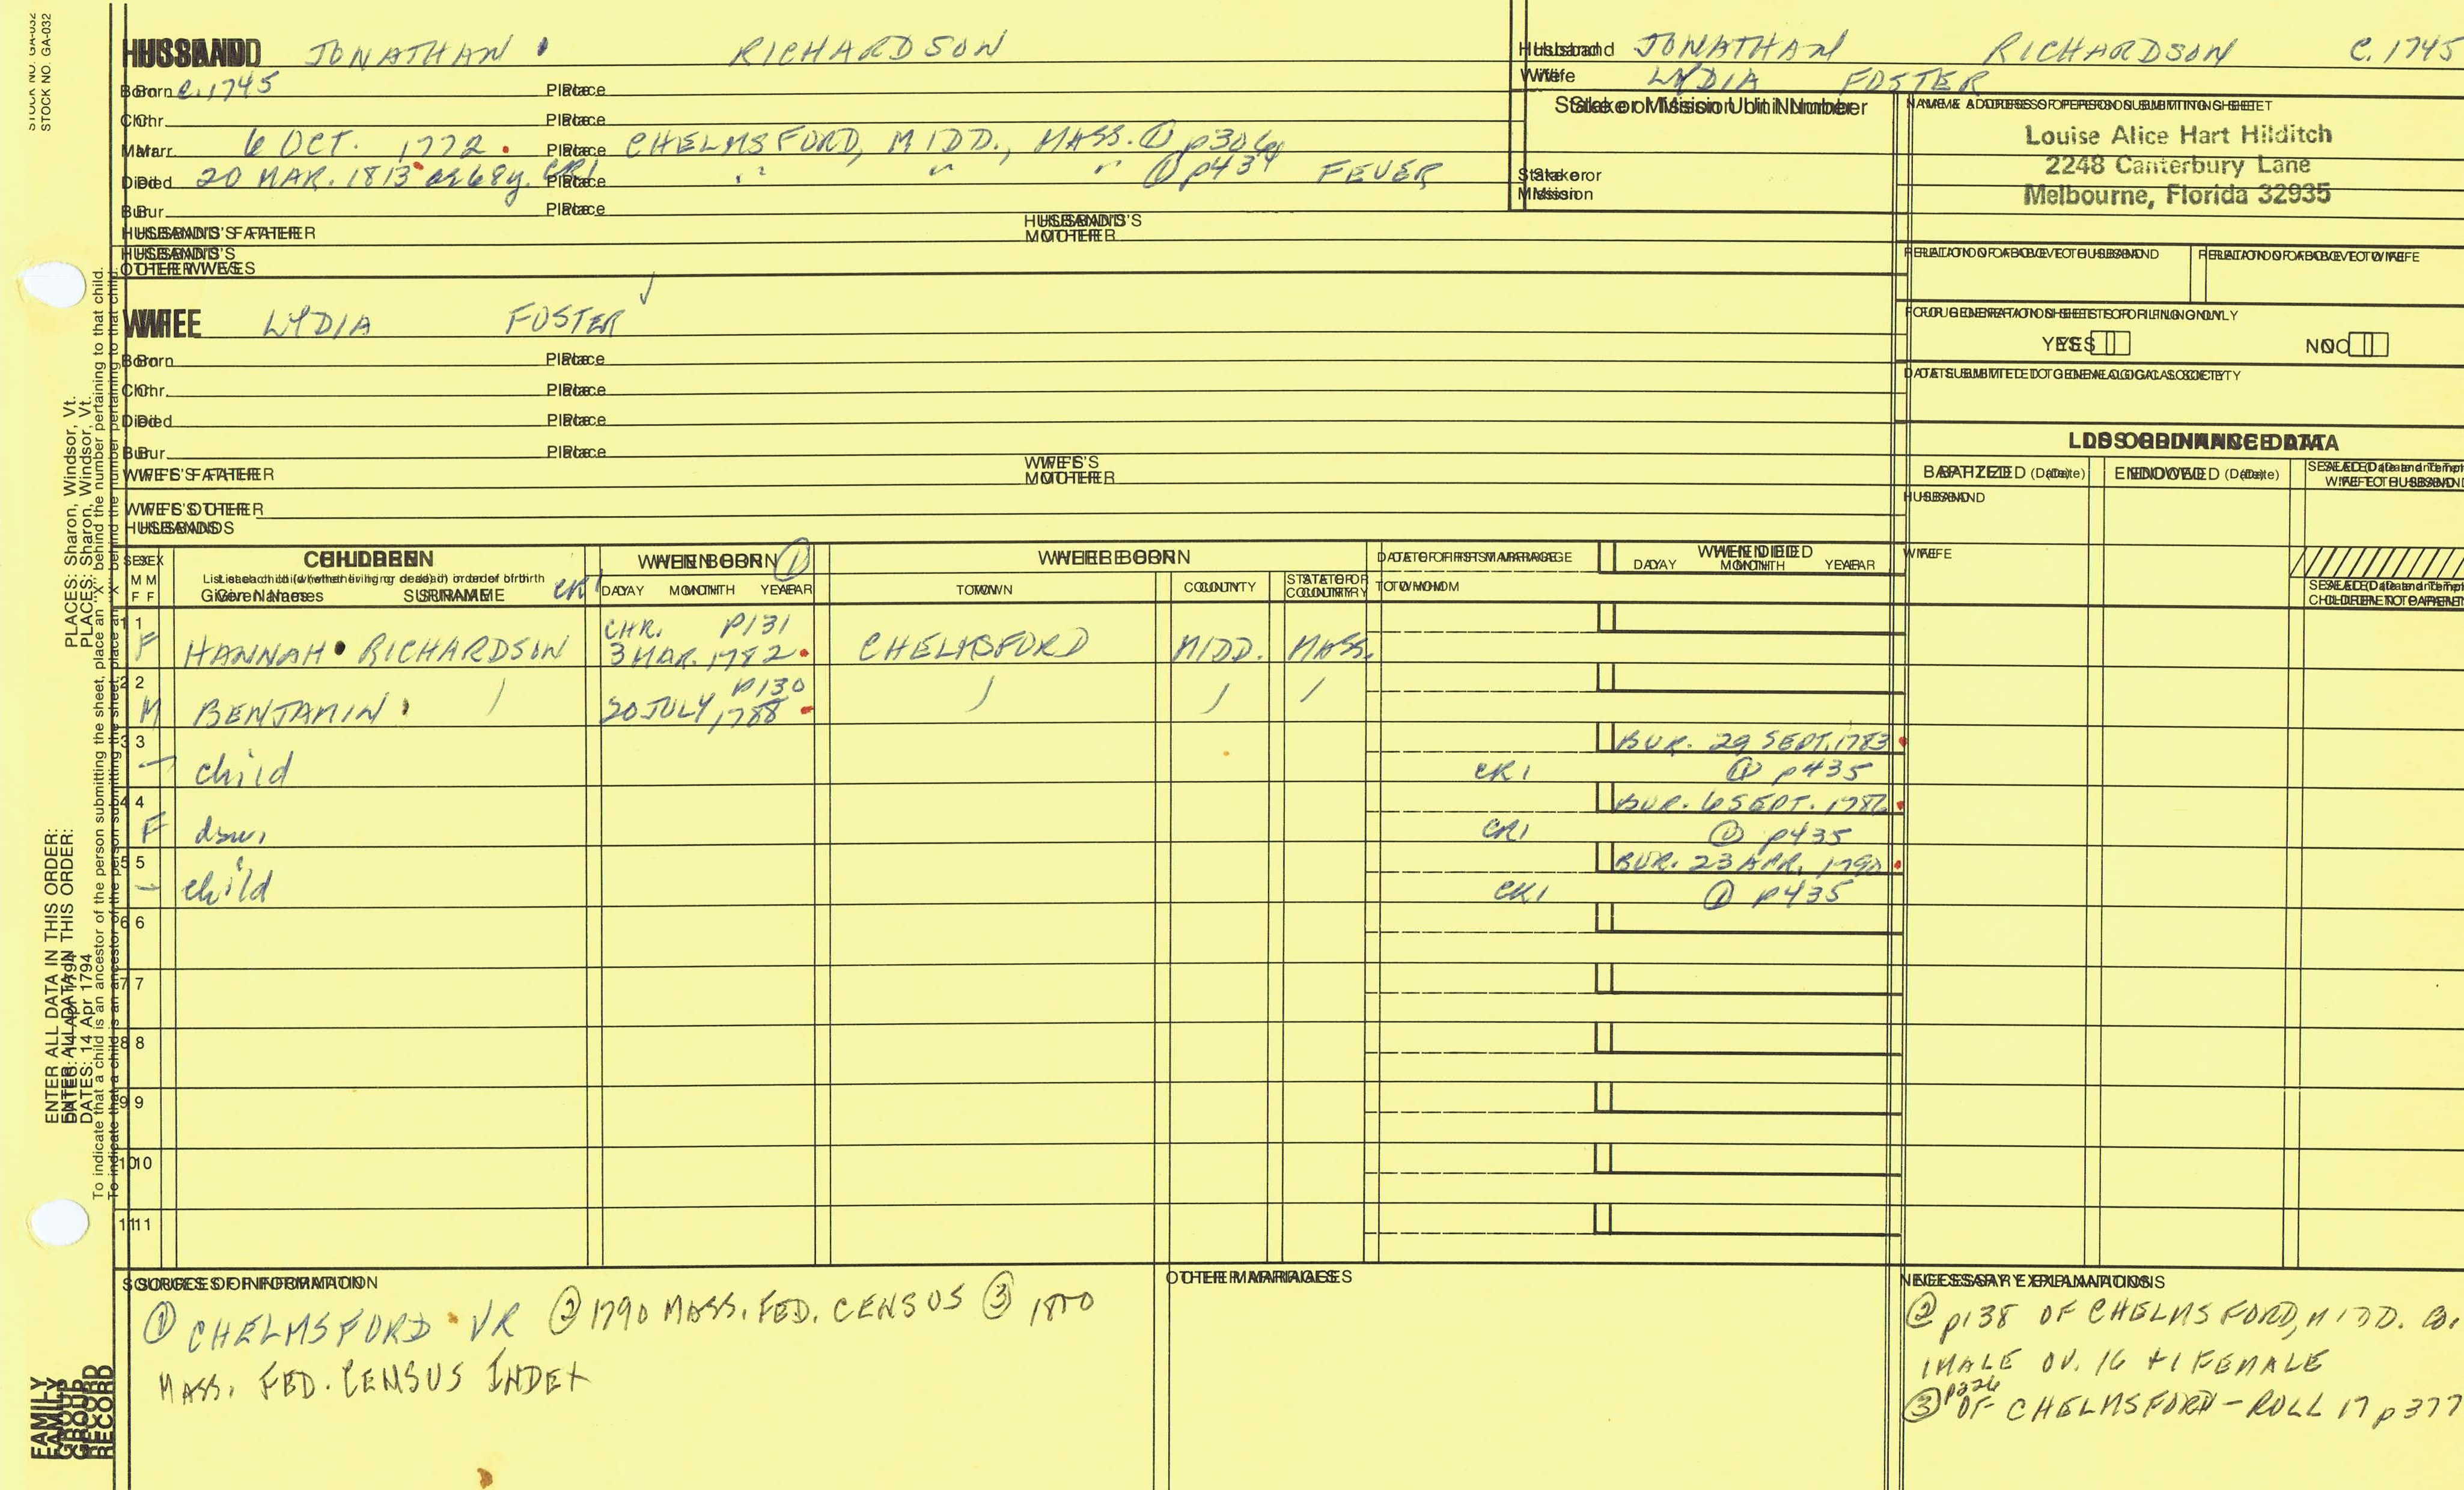 STOCK NO. GA-032
HUSBAND JONATHAN RICHARDSON
Born c.1745 Place
Chr. Place
Marr. 6 OCT. 1772. Place CHELMSFORD, MIDD., MASS. ① p306
Died 20 MAR. 1813 ae 68y. CR1 Place " " " ① p434 FEVER
Bur. Place
HUSBAND'S FATHER HUSBAND'S MOTHER
HUSBAND'S OTHER WIVES
Husband JONATHAN RICHARDSON C. 1745
Wife LYDIA FOSTER
Stake or Mission Unit Number
Stake or Mission
NAME & ADDRESS OF PERSON SUBMITTING SHEET
Louise Alice Hart Hilditch
2248 Canterbury Lane
Melbourne, Florida 32935
RELATION OF ABOVE TO HUSBAND RELATION OF ABOVE TO WIFE
FOUR GENERATION SHEETS FOR FILING ONLY
YES NO
DATE SUBMITTED TO GENEALOGICAL SOCIETY
WIFE LYDIA FOSTER
Born Place
Chr. Place
Died Place
Bur. Place
WIFE'S FATHER WIFE'S MOTHER
WIFE'S OTHER HUSBANDS
LDS ORDINANCE DATA
BAPTIZED (Date) ENDOWED (Date) SEALED (Date and Temple) WIFE TO HUSBAND
HUSBAND
WIFE
SEALED (Date and Temple) CHILDREN TO PARENTS
SEX M F CHILDREN WHEN BORN ① WHERE BORN DATE OF FIRST MARRIAGE WHEN DIED
List each child (whether living or dead) in order of birth
Given Names SURNAME CR1 DAY MONTH YEAR TOWN COUNTY STATE OR COUNTRY TO WHOM DAY MONTH YEAR
1 CHR. P131
F HANNAH RICHARDSON 3 MAR. 1782 CHELMSFORD MIDD. MASS.
2 P130
M BENJAMIN / 20 JULY, 1788 / / /
3 BUR. 29 SEPT. 1783
- child CR1 ① p435
4 BUR. 6 SEPT. 1786
F dau. CR1 ① p435
5 BUR. 23 APR. 1790
- child CR1 ① p435
6
7
8
9
10
11
SOURCES OF INFORMATION
① CHELMSFORD VR ② 1790 MASS. FED. CENSUS ③ 1800
MASS. FED. CENSUS INDEX
OTHER MARRIAGES
NECESSARY EXPLANATIONS
② p138 OF CHELMSFORD, MIDD. CO.
1 MALE OV. 16 + 1 FEMALE
③ p226 OF CHELMSFORD - ROLL 17 p 377
PLACES: Sharon, Windsor, Vt.
ENTER ALL DATA IN THIS ORDER:
DATES: 14 Apr 1794
To indicate that a child is an ancestor of the person submitting the sheet, place an "X" behind the number pertaining to that child.
FAMILY GROUP RECORD